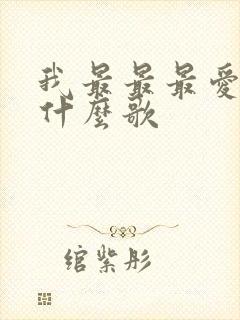 我最最最爱
什麼歌
绾紫彤